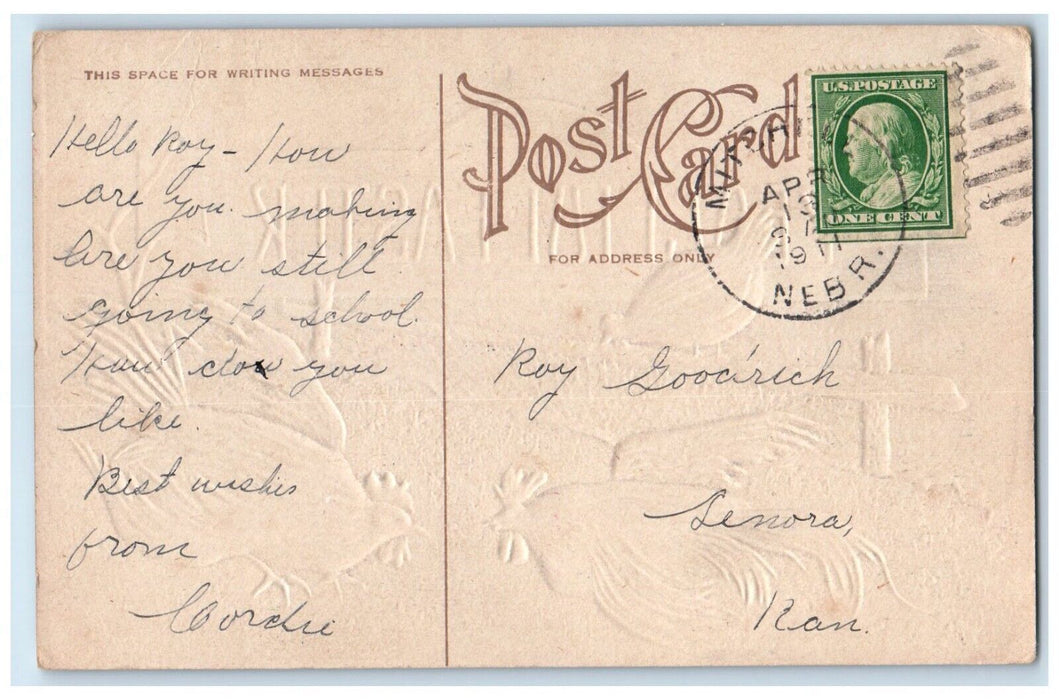 THIS SPACE FOR WRITING MESSAGES
Post Card
FOR ADDRESS ONLY
U.S. POSTAGE
ONE CENT
APR
13
1911
NEBR.
Hello Roy - How
are you making
Are you still
going to school.
How do you
like.
Best wishes
from
Cordie
Roy Goodrich
Lenora,
Kan.